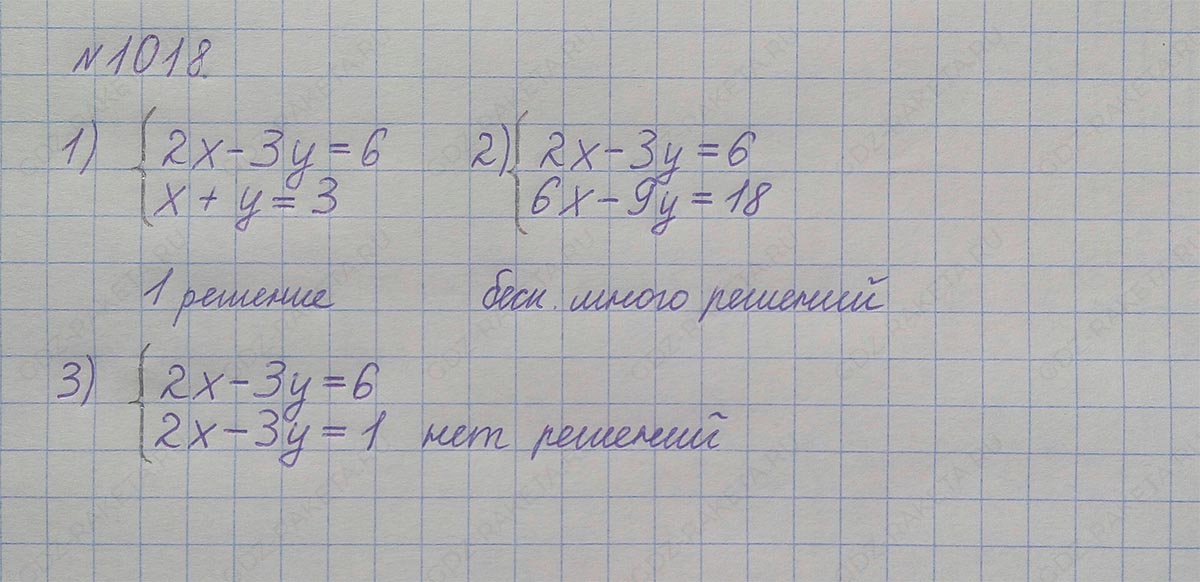 №1018.
1) { 2x-3y=6 2) { 2x-3y=6
x+y=3 6x-9y=18
1 решение беск. много решений
3) { 2x-3y=6
2x-3y=1 нет решений
GDZ-RAKETA.RU